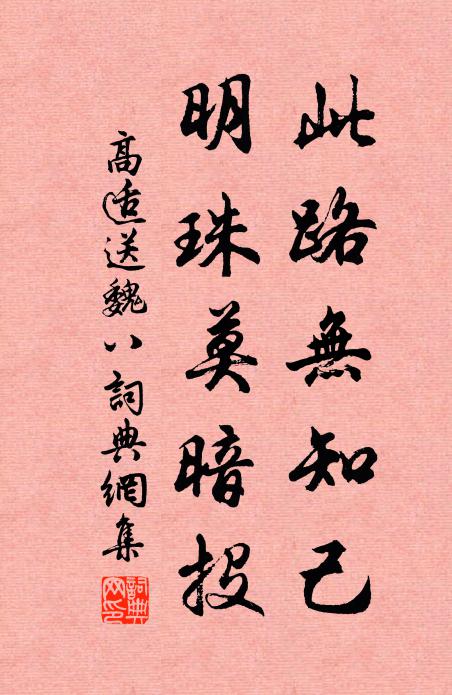 此路無知己
明珠莫暗投
高适送魏八詞典網集
詞典網印